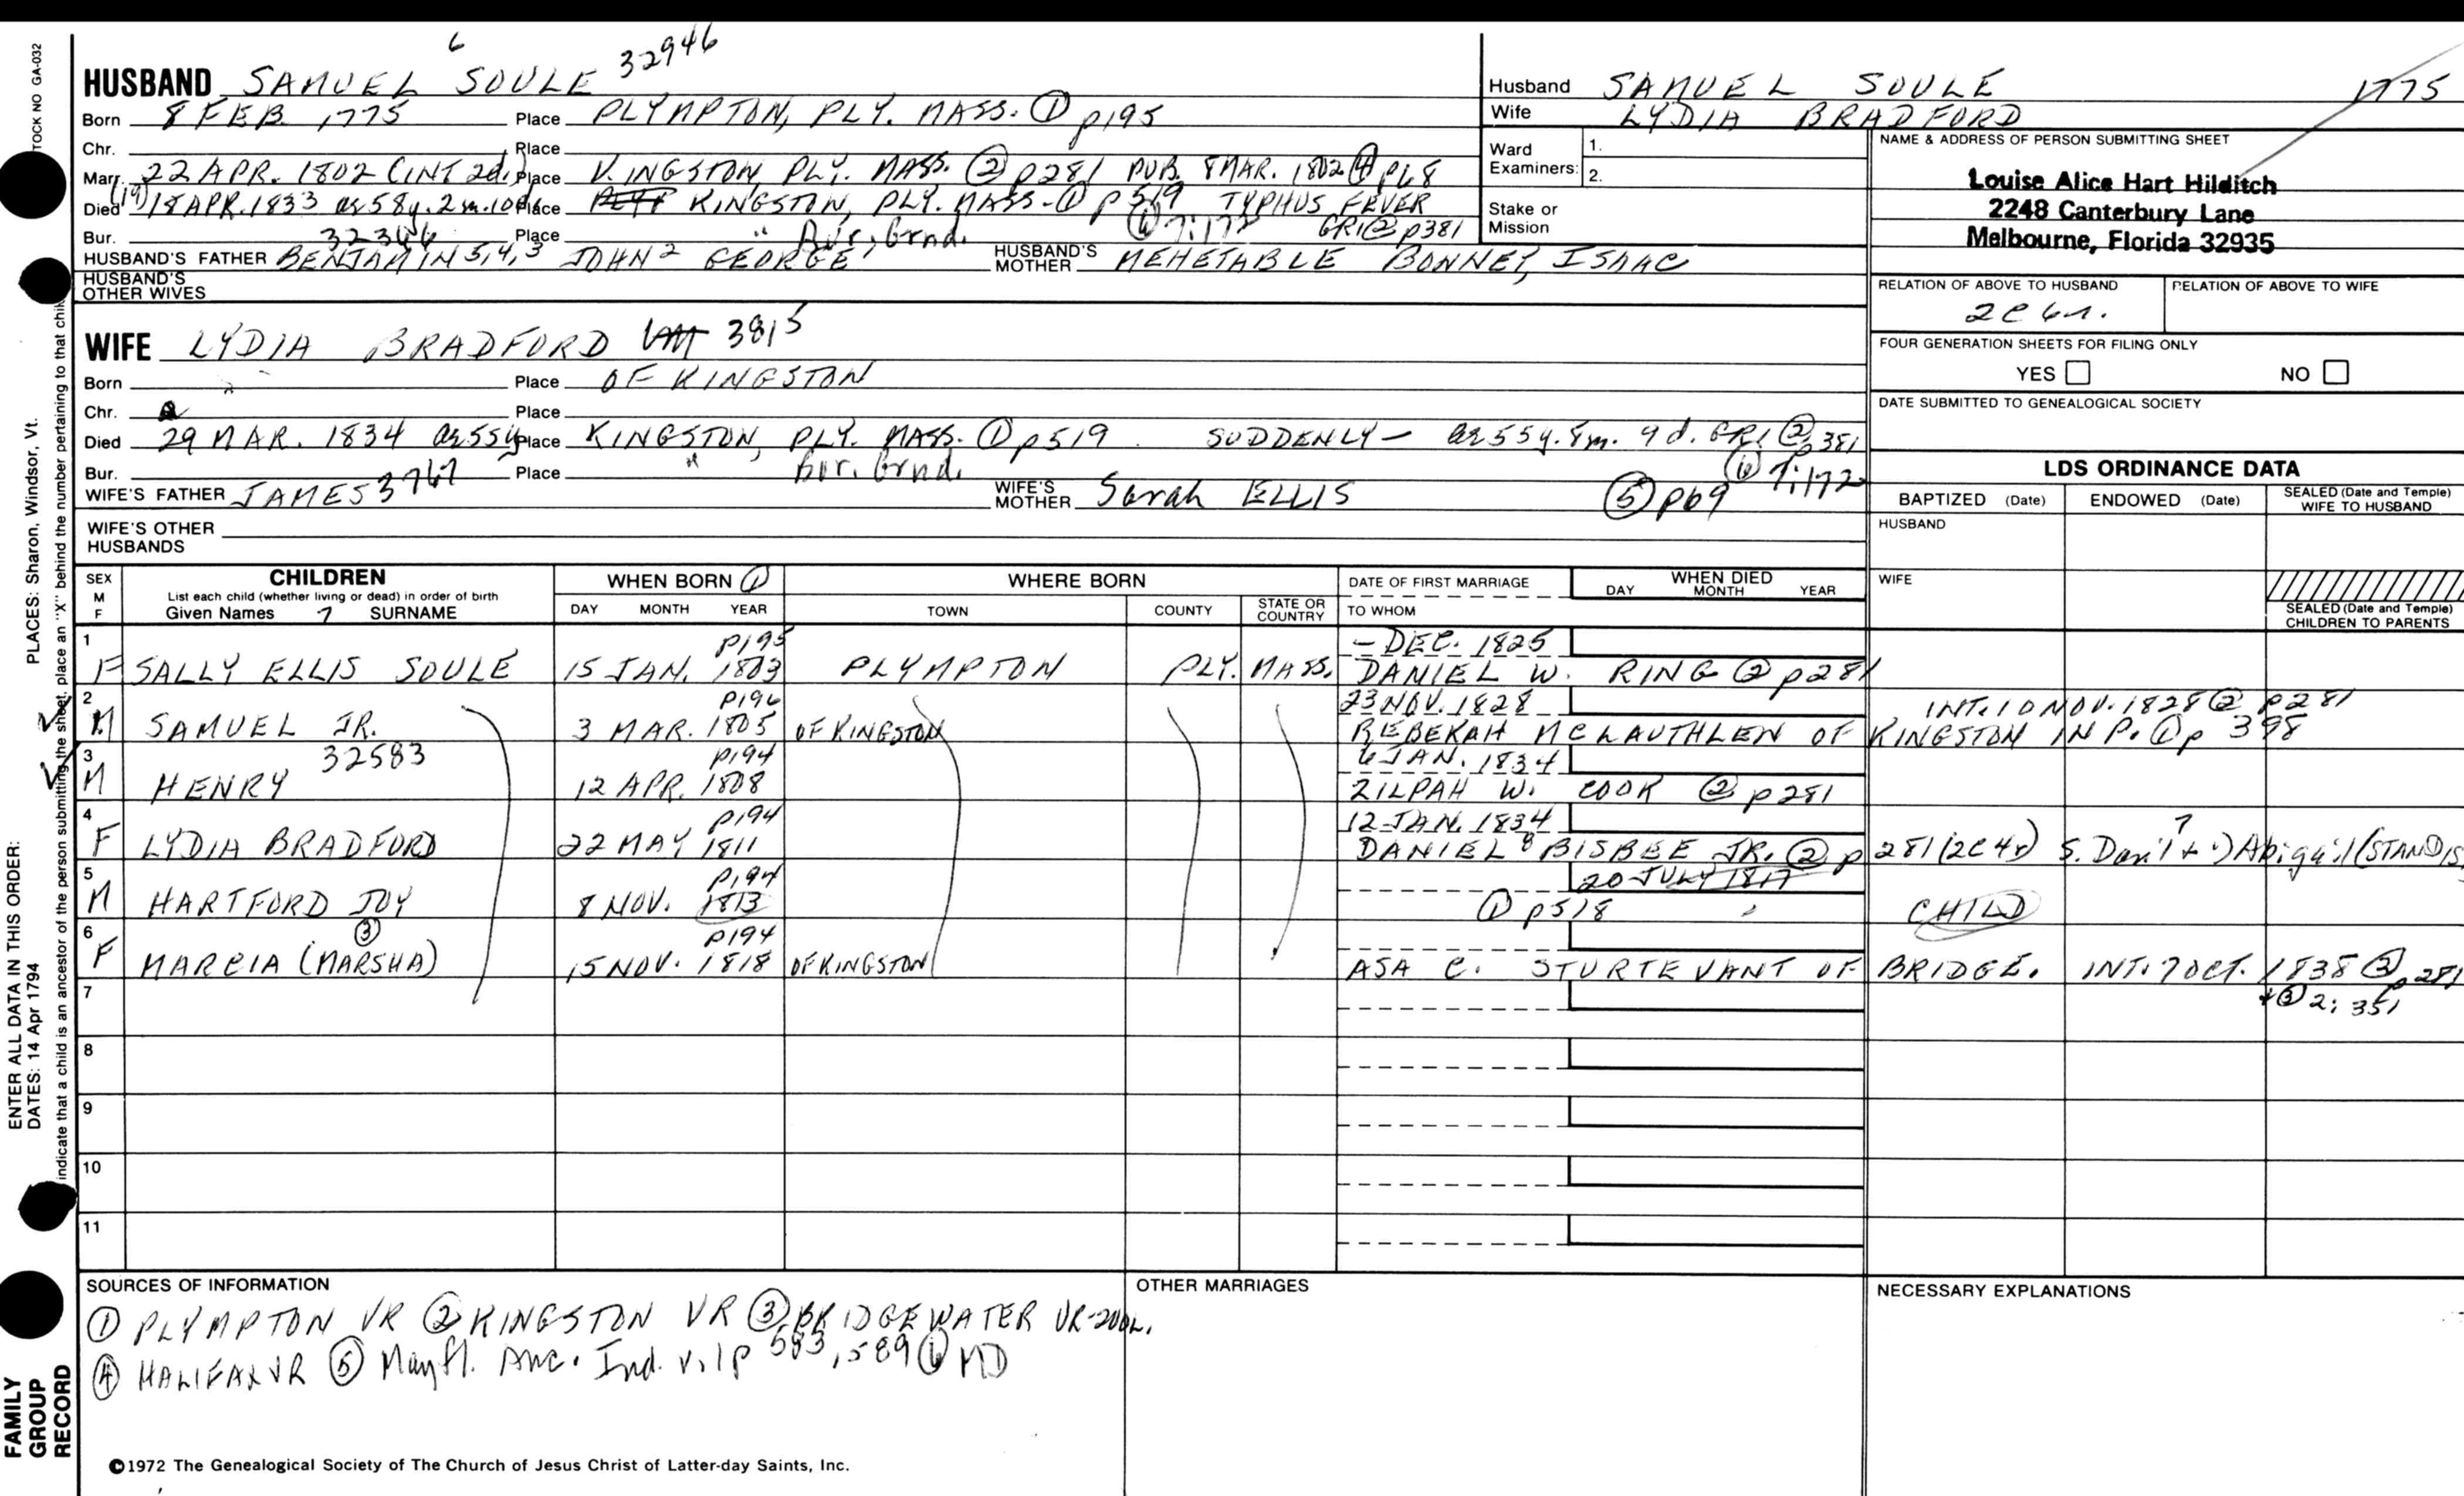 6 32946
HUSBAND SAMUEL SOULE
Born 8 FEB. 1775 Place PLYMPTON, PLY. MASS. ① p195
Chr. Place
Marr. 22 APR. 1802 (INT 2d.) Place KINGSTON, PLY. MASS. ② p281 PUB. 8 MAR. 1802 ④ p68
Died (19) 18 APR. 1833 ae 58y. 2m. 10d. Place KINGSTON, PLY. MASS. ① p519 TYPHUS FEVER
Bur. 32346 Place " Bur. Grnd. ⑥ 7:172 GR1 ② p381
HUSBAND'S FATHER BENJAMIN 5,4,3 JOHN 2 GEORGE 1 HUSBAND'S MOTHER MEHETABLE BONNEY, ISAAC
HUSBAND'S OTHER WIVES
Husband SAMUEL SOULE 1775
Wife LYDIA BRADFORD
Ward Examiners: 1.
2.
Stake or Mission
NAME & ADDRESS OF PERSON SUBMITTING SHEET
Louise Alice Hart Hilditch
2248 Canterbury Lane
Melbourne, Florida 32935
RELATION OF ABOVE TO HUSBAND RELATION OF ABOVE TO WIFE
2C 6r.
FOUR GENERATION SHEETS FOR FILING ONLY
YES NO
DATE SUBMITTED TO GENEALOGICAL SOCIETY
WIFE LYDIA BRADFORD 3815
Born Place OF KINGSTON
Chr. Place
Died 29 MAR. 1834 ae 55y Place KINGSTON, PLY. MASS. ① p519 SUDDENLY - ae 55y. 8m. 9d. GR1 ② 381
Bur. Place " Bur. Grnd. ⑥ 7:172
WIFE'S FATHER JAMES 3767 WIFE'S MOTHER Sarah ELLIS ⑤ p69
WIFE'S OTHER HUSBANDS
LDS ORDINANCE DATA
BAPTIZED (Date) ENDOWED (Date) SEALED (Date and Temple) WIFE TO HUSBAND
HUSBAND
WIFE
SEALED (Date and Temple) CHILDREN TO PARENTS
SEX M F CHILDREN List each child (whether living or dead) in order of birth Given Names 7 SURNAME
WHEN BORN ① DAY MONTH YEAR
WHERE BORN TOWN COUNTY STATE OR COUNTRY
DATE OF FIRST MARRIAGE TO WHOM
WHEN DIED DAY MONTH YEAR
1 p195 - DEC. 1825
F SALLY ELLIS SOULE 15 JAN. 1803 PLYMPTON PLY. MASS. DANIEL W. RING ② p281
2 p196 23 NOV. 1828 INT. 10 NOV. 1828 ② p281
M SAMUEL JR. 3 MAR. 1805 OF KINGSTON REBEKAH MCLAUTHLEN OF KINGSTON IN P. ① p 398
3 32583 p194 6 JAN. 1834
M HENRY 12 APR. 1808 ZILPAH W. COOK ② p281
4 p194 12 JAN. 1834
F LYDIA BRADFORD 22 MAY 1811 DANIEL 8 BISBEE JR. ② p 281 (2C4r) S. Dan'l 7 + Abigail (STANDIS
5 p194 20 JULY 1817
M HARTFORD JOY 8 NOV. 1813 ① p518 CHILD
6 ③ p194
F MARCIA (MARSHA) 15 NOV. 1818 OF KINGSTON ASA C. STURTEVANT OF BRIDGE. INT. 7 OCT. 1838 ② p281
+ ③ 2: 351
7
8
9
10
11
SOURCES OF INFORMATION
① PLYMPTON VR ② KINGSTON VR ③ BRIDGEWATER VR-2VOL.
④ HALIFAX VR ⑤ Mayfl. Anc. Ind. v.1 p 583, 589 ⑥ MD
OTHER MARRIAGES
NECESSARY EXPLANATIONS
©1972 The Genealogical Society of The Church of Jesus Christ of Latter-day Saints, Inc.
TOCK NO GA-032
PLACES: Sharon, Windsor, Vt.
place an "X" behind the number pertaining to that chil
indicate that a child is an ancestor of the person submitting the sheet,
ENTER ALL DATA IN THIS ORDER:
DATES: 14 Apr 1794
FAMILY GROUP RECORD